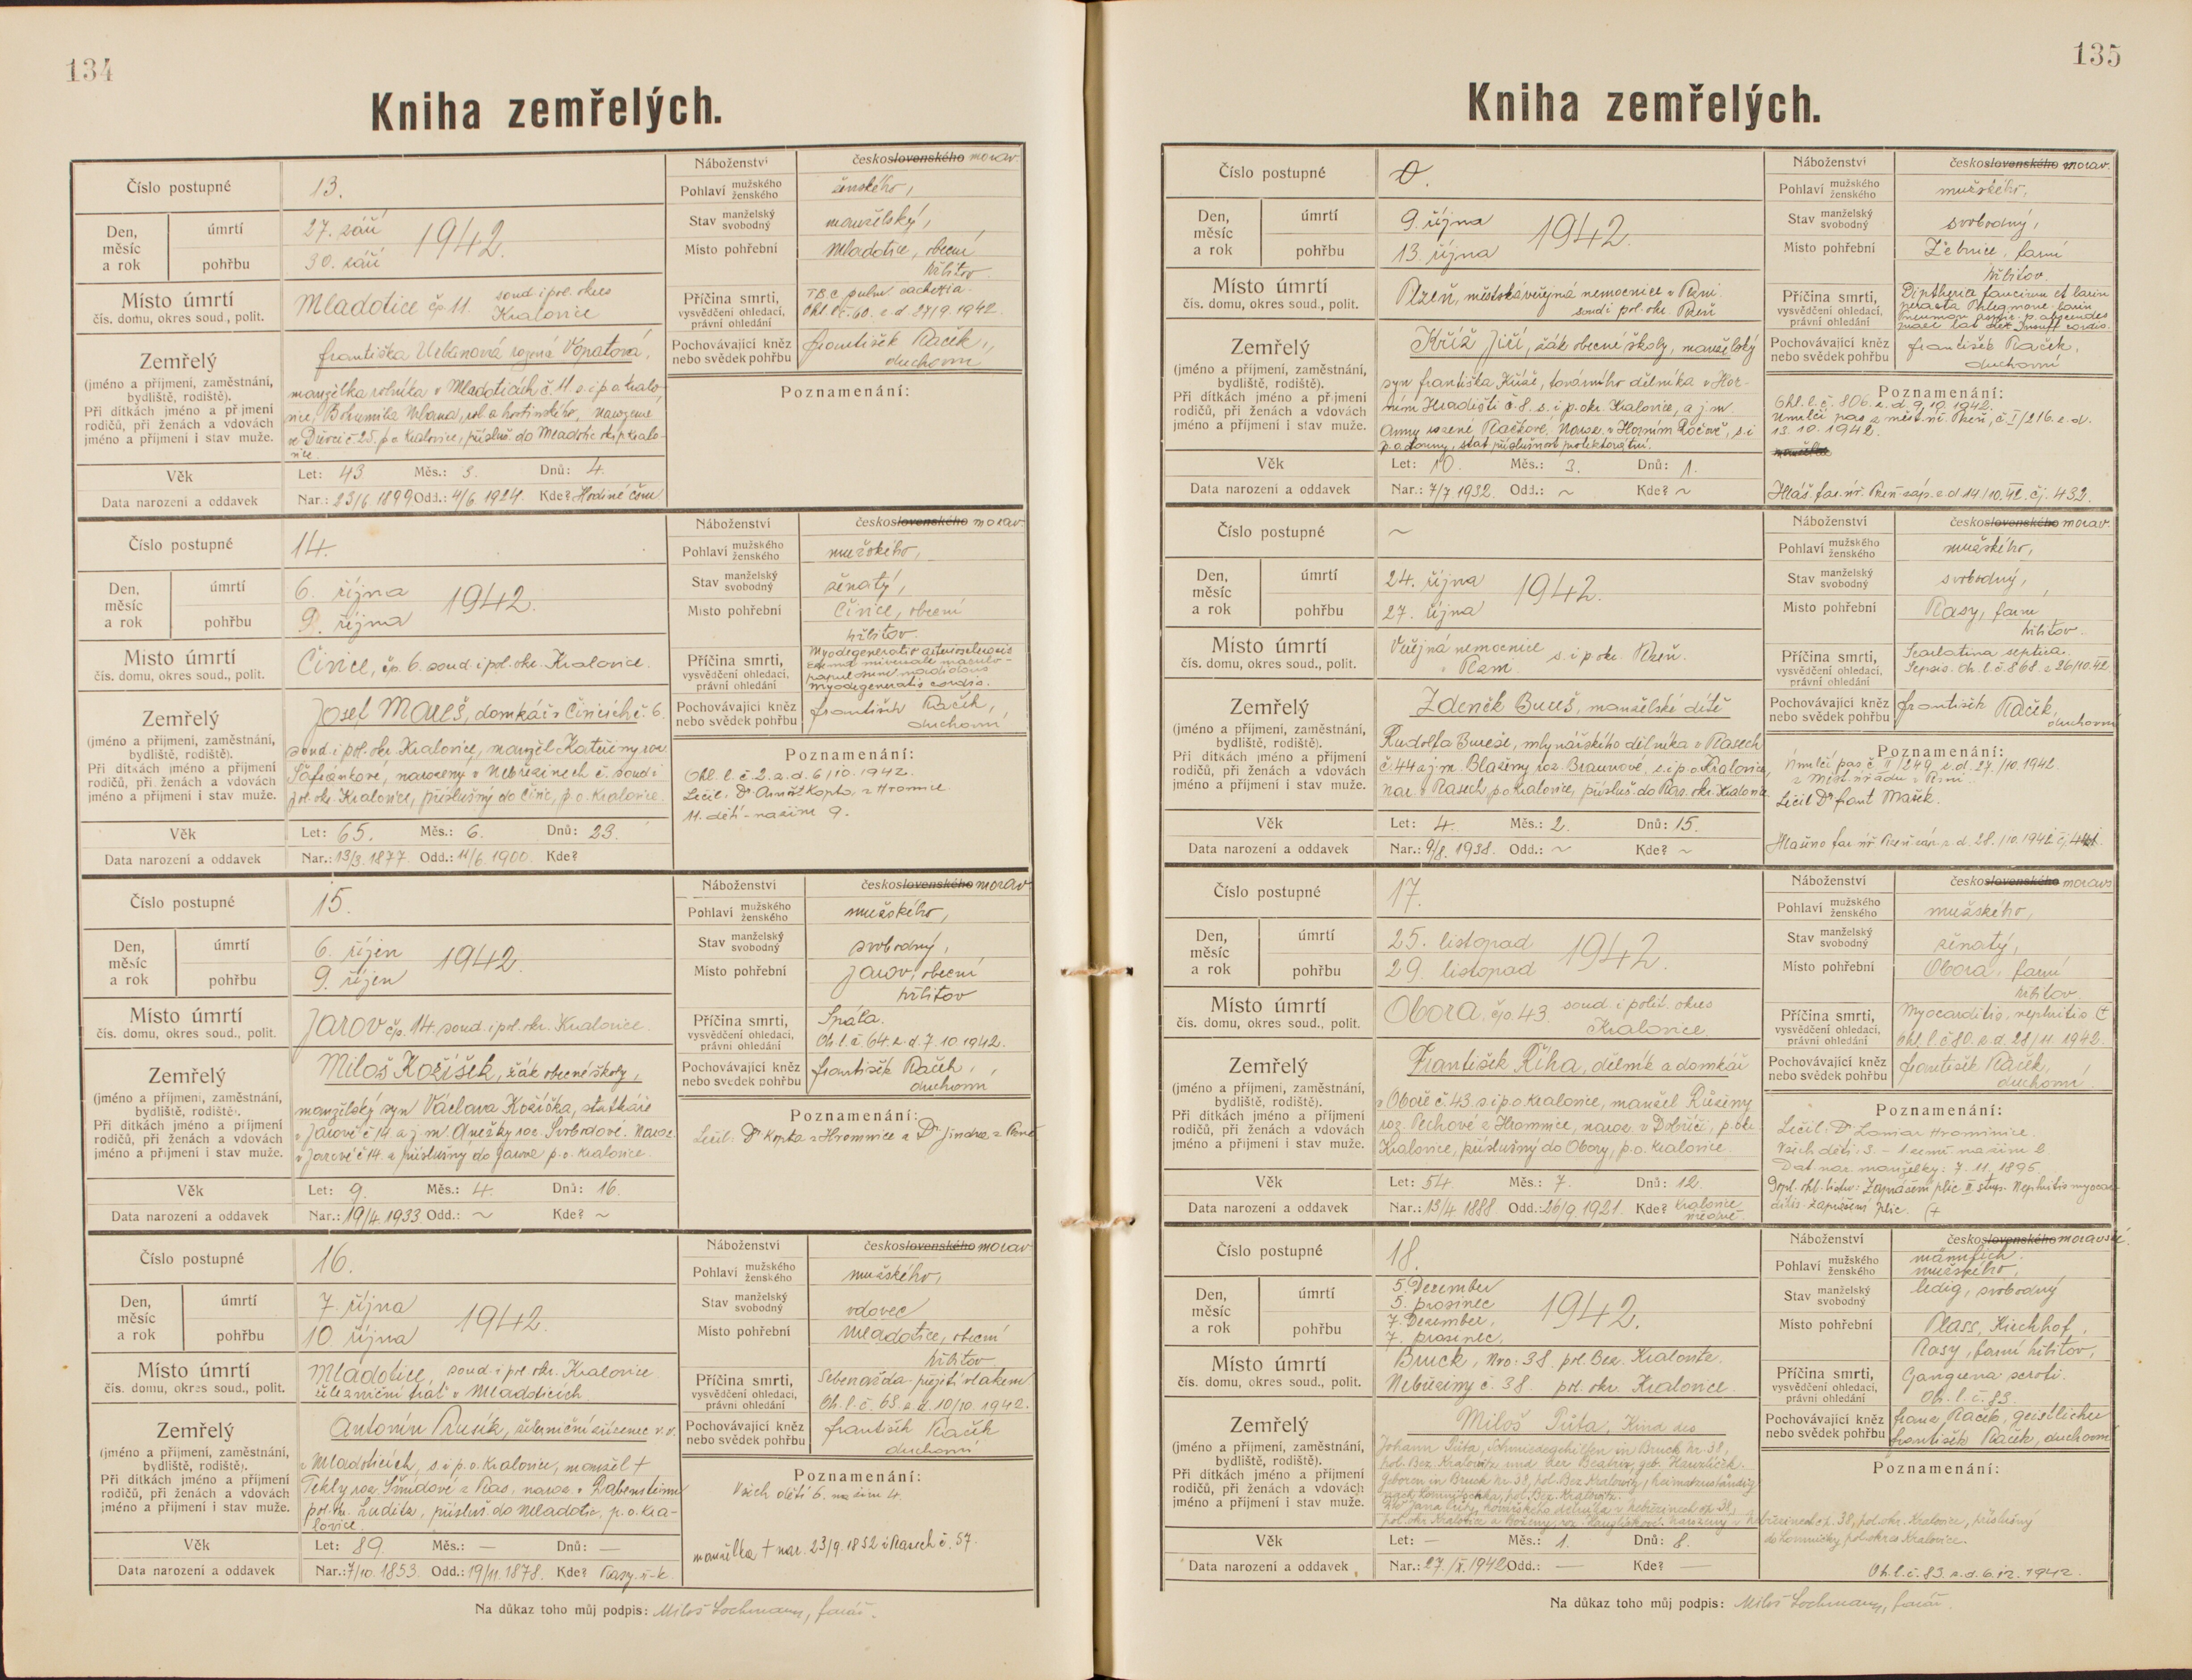 134
Kniha zemřelých.
Číslo postupné 13.
Den, měsíc a rok
úmrtí 27. září 1942.
pohřbu 30. září
Místo úmrtí
čís. domu, okres soud., polit.
Mladotice čp 11. soud. i pol. okres
Kralovice
Zemřelý
(jméno a příjmení, zaměstnání,
bydliště, rodiště).
Při dítkách jméno a příjmení
rodičů, při ženách a vdovách
jméno a příjmení i stav muže.
Františka Urbanová rozená Vopatová,
manželka rolníka v Mladoticích č. 11. s. i p. o. Kralo-
vice, Bohumila Urbana,
č 25. p. o. Kralovice, přísluš. do Mladotic
Věk Let: 43 Měs.: 3. Dnů: 4.
Data narození a oddavek Nar.: 23/6 1899 Odd.: 4/6 1924. Kde?
Náboženství československého morav.
Pohlaví mužského ženského ženského,
Stav manželský svobodný manželský,
Místo pohřební Mladotice, obecní
hřbitov.
Příčina smrti,
vysvědčení ohledací,
právní ohledání
TBC pulm. cachexia.
Ohl. l. č. 60. z. d. 27/9. 1942.
Pochovávající kněz
nebo svědek pohřbu
František Raček,
duchovní
Poznamenání:
Číslo postupné 14.
Den, měsíc a rok
úmrtí 6. října 1942.
pohřbu 9. října
Místo úmrtí
čís. domu, okres soud., polit.
Čivice, čp. 6. soud i pol. okr. Kralovice.
Zemřelý
(jméno a příjmení, zaměstnání,
bydliště, rodiště).
Při dítkách jméno a příjmení
rodičů, při ženách a vdovách
jméno a příjmení i stav muže.
Josef Mareš, domkář v Čivicích č. 6.
soud. i pol. okr. Kralovice, manžel Kateřiny roz.
Šafránkové, narozený v Nebřezinech č. soud i
pol. okr. Kralovice, příslušný do Čivic, p. o. Kralovice.
Věk Let: 65. Měs.: 6. Dnů: 23.
Data narození a oddavek Nar.: 13/3. 1877. Odd.: 11/6. 1900. Kde?
Náboženství československého morav.
Pohlaví mužského ženského mužského,
Stav manželský svobodný ženatý,
Místo pohřební Čivice, obecní
hřbitov.
Příčina smrti,
vysvědčení ohledací,
právní ohledání
Myodegeneratio
myodegeneratio cordis.
Pochovávající kněz
nebo svědek pohřbu
František Raček,
duchovní
Poznamenání:
Ohl. l. č 2. z. d. 6/10. 1942.
Léčil: Dr Kopta, z Hromnic.
11. dětí - naživu 9.
Číslo postupné 15.
Den, měsíc a rok
úmrtí 6. říjen 1942.
pohřbu 9. říjen
Místo úmrtí
čís. domu, okres soud., polit.
Jarov čp. 14. soud. i pol. okr. Kralovice.
Zemřelý
(jméno a příjmení, zaměstnání,
bydliště, rodiště).
Při dítkách jméno a příjmení
rodičů, při ženách a vdovách
jméno a příjmení i stav muže.
Miloš Kožíšek, žák obecné školy,
manželský syn Václava Kožíška, statkáře
v Jarově č 14 a j. m. Anežky roz. Svobodové. Naroz.
v Jarově č 14. a příslušný do Jarova p. o. Kralovice.
Věk Let: 9. Měs.: 4. Dnů: 16.
Data narození a oddavek Nar.: 19/4. 1933. Odd.: ~ Kde? ~
Náboženství československého morav
Pohlaví mužského ženského mužského,
Stav manželský svobodný svobodný,
Místo pohřební Jarov, obecní
hřbitov
Příčina smrti,
vysvědčení ohledací,
právní ohledání
Spála.
Oh. l. č. 64. z. d. 7. 10 1942.
Pochovávající kněz
nebo svědek pohřbu
František Raček,
duchovní
Poznamenání:
Léčil: Dr Kopta z Hromnice a Dr Jindra z
Číslo postupné 16.
Den, měsíc a rok
úmrtí 7. října 1942.
pohřbu 10. října
Místo úmrtí
čís. domu, okres soud., polit.
Mladotice, soud. i pol. okr. Kralovice
železniční trať v Mladoticích
Zemřelý
(jméno a příjmení, zaměstnání,
bydliště, rodiště).
Při dítkách jméno a příjmení
rodičů, při ženách a vdovách
jméno a příjmení i stav muže.
Antonín Prusík, železniční zřízenec v. v.
v Mladoticích, s. i p. o. Kralovice, manžel †
Tekly roz. Šmídové z Plas, naroz. v Rabensteinu
pol. okr. Luditz, přísluš. do Mladotic, p. o. Kra-
lovice.
Věk Let: 89. Měs.: — Dnů: —
Data narození a oddavek Nar.: 7/10. 1853. Odd.: 19/11. 1878. Kde? Plasy ř-k.
Náboženství československého morav
Pohlaví mužského ženského mužského,
Stav manželský svobodný vdovec
Místo pohřební Mladotice, obecní
hřbitov
Příčina smrti,
vysvědčení ohledací,
právní ohledání
Sebevražda - přejetí vlakem
Oh. l. č. 65. z. d. 10/10. 1942.
Pochovávající kněz
nebo svědek pohřbu
František Raček
duchovní
Poznamenání:
Všech dětí 6. naživu 4.
manželka † nar. 23/9. 1852 v Plasech č. 57.
Na důkaz toho můj podpis: Miloš Lochmann, farář.
135
Kniha zemřelých.
Číslo postupné 0.
Den, měsíc a rok
úmrtí 9. října 1942.
pohřbu 13. října
Místo úmrtí
čís. domu, okres soud., polit.
Plzeň, městská veřejná nemocnice v Plzni
soud i pol. okr. Plzeň
Zemřelý
(jméno a příjmení, zaměstnání,
bydliště, rodiště).
Při dítkách jméno a příjmení
rodičů, při ženách a vdovách
jméno a příjmení i stav muže.
Kříž Jiří, žák obecné školy, manželský
syn Františka Kříže, továrního dělníka v Hor-
ním Hradišti č. 8. s. i p. okr. Kralovice, a j. m.
Anny rozené Račkové. Naroz. v Horním Ročově, s. i
p. o. Louny, stát. příslušnost protektorátní.
Věk Let: 10. Měs.: 3. Dnů: 1.
Data narození a oddavek Nar.: 7/7 1932. Odd.: ~ Kde? ~
Náboženství československého morav.
Pohlaví mužského ženského mužského,
Stav manželský svobodný svobodný,
Místo pohřební Žebnice, farní
hřbitov.
Příčina smrti,
vysvědčení ohledací,
právní ohledání
Diptheria faucium et larin
Pochovávající kněz
nebo svědek pohřbu
František Raček,
duchovní
Poznamenání:
Ohl. l. č. 806. z. d. 9. 10. 1942.
Umrlčí pas z měst. úř. Plzeň, č I/216. z. d.
13. 10. 1942.
Hláš. far. úř. Plzeň-záp. z d 14/10. 42. čj. 432.
Číslo postupné ~
Den, měsíc a rok
úmrtí 24. října 1942.
pohřbu 27. října
Místo úmrtí
čís. domu, okres soud., polit.
Veřejná nemocnice s. i p. okr. Plzeň.
v Plzni
Zemřelý
(jméno a příjmení, zaměstnání,
bydliště, rodiště).
Při dítkách jméno a příjmení
rodičů, při ženách a vdovách
jméno a příjmení i stav muže.
Zdeněk Bureš, manželské dítě
Rudolfa Bureše, mlynářského dělníka v Plasech
č. 44 a j. m. Blaženy roz. Braunové, s. i p. o Kralovice,
nar. v Plasech p. o Kralovice, přísluš. do Plas. okr. Kralovice.
Věk Let: 4. Měs.: 2. Dnů: 15.
Data narození a oddavek Nar.: 9/8. 1938. Odd.: ~ Kde? ~
Náboženství československého morav.
Pohlaví mužského ženského mužského,
Stav manželský svobodný svobodný,
Místo pohřební Plasy, farní
hřbitov.
Příčina smrti,
vysvědčení ohledací,
právní ohledání
Scarlatina septica.
Sepsis. Oh. l. č. 868. z 26/10. 42.
Pochovávající kněz
nebo svědek pohřbu
František Raček,
duchovní
Poznamenání:
Umrlčí pas č II/249. z. d. 27./10. 1942.
z Měst. úřadu v Plzni.
Léčil Dr Frant Mašek.
Hlášeno far. úř. Plzeň-záp. z. d. 28./10. 1942
Číslo postupné 17.
Den, měsíc a rok
úmrtí 25. listopad 1942.
pohřbu 29. listopad
Místo úmrtí
čís. domu, okres soud., polit.
Obora. čp. 43. soud. i polit. okres
Kralovice
Zemřelý
(jméno a příjmení, zaměstnání,
bydliště, rodiště).
Při dítkách jméno a příjmení
rodičů, při ženách a vdovách
jméno a příjmení i stav muže.
František Říha, dělník a domkář
v Oboře č. 43. s. i p. o Kralovice, manžel Růženy
roz. Pechové z Hromnice, naroz. v Dobříči, p. okr.
Kralovice, příslušný do Obory, p. o. Kralovice.
Věk Let: 54. Měs.: 7. Dnů: 12.
Data narození a oddavek Nar.: 13/4 1888. Odd.: 26/9. 1921. Kde? Kralovice
Náboženství československého moravs
Pohlaví mužského ženského mužského,
Stav manželský svobodný ženatý,
Místo pohřební Obora, farní
hřbitov
Příčina smrti,
vysvědčení ohledací,
právní ohledání
Myocarditis, nephritis (+
Ohl. l. č 80. z. d. 28/11. 1942.
Pochovávající kněz
nebo svědek pohřbu
František Raček,
duchovní
Poznamenání:
Léčil: Dr Hromnice.
Všech dětí: 3. - 1 zemř. naživu 2.
Dat. nar. manželky: 7. 11. 1895.
Dopl. ohl. listu: Zaprášení plic II stup. Nephritis myocar-
ditis. Zaprášení plic. (+
Číslo postupné 18.
Den, měsíc a rok
úmrtí 5. Dezember
5. prosinec 1942.
pohřbu 7. Dezember,
7. prosinec,
Místo úmrtí
čís. domu, okres soud., polit.
Bruck, Nro: 38. pol. Bez. Kralovitz.
Nebřeziny č. 38. pol. okr. Kralovice.
Zemřelý
(jméno a příjmení, zaměstnání,
bydliště, rodiště).
Při dítkách jméno a příjmení
rodičů, při ženách a vdovách
jméno a příjmení i stav muže.
Miloš Půta, Kind des
Johann Půta, Schmiedegehilfen in Bruck Nr. 38,
pol. Bez. Kralowitz und der geb. Hawlíček.
Geboren in Bruck Nr. 38, pol. Bez. Kralowitz, heimatzuständig
nach pol. Bez. Kralowitz.
Jana Půty, kovářského dělníka v Nebřezinech čp. 38,
pol. okr. Kralovice a Boženy, roz. narozený v Nebřezinech čp. 38, pol. okr. Kralovice, příslušný
do Lomničky, pol. okres Kralovice.
Věk Let: — Měs.: 1. Dnů: 8.
Data narození a oddavek Nar.: 27./X. 1942 Odd.: — Kde? —
Náboženství československého moravské.
Pohlaví mužského ženského männlich.
mužského,
Stav manželský svobodný ledig, svobodný
Místo pohřební Plass, Kirchhof,
Plasy, farní hřbitov,
Příčina smrti,
vysvědčení ohledací,
právní ohledání
Gangrena scroti.
Oh. l. č. 83.
Pochovávající kněz
nebo svědek pohřbu
Franz Raček, Geistlicher
František Raček, duchovní
Poznamenání:
Oh. l. č. 83. z. d. 6. 12. 1942.
Na důkaz toho můj podpis: Miloš Lochmann, farář.